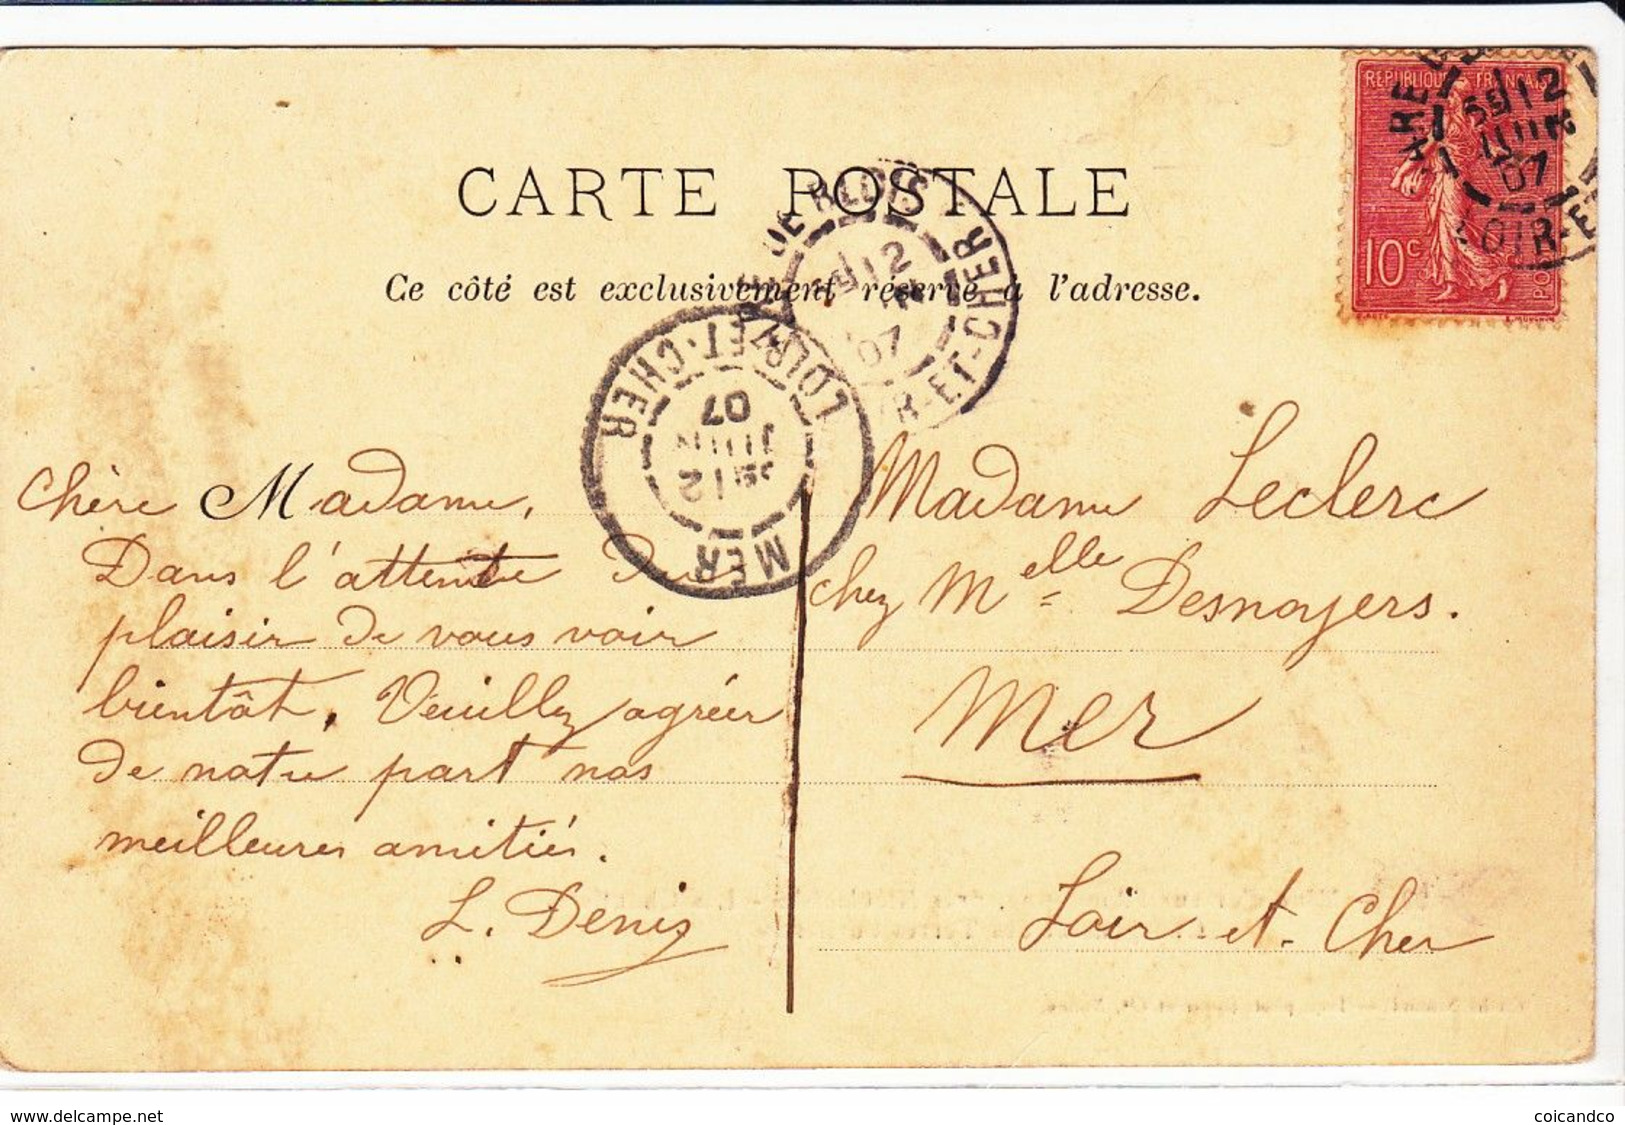 CARTE POSTALE
Ce côté est exclusivement réservé à l'adresse.
REPUBLIQUE FRANÇAISE
10c
GARE DE BLOIS
12
07
LOIR-ET-CHER
LOIR-ET-CHER
07
JUIN
12
MER
12
JUIN
07
LOIR-ET
Chère Madame,
Dans l'attente du
plaisir de vous voir
bientôt, Veuillez agréer
de notre part nos
meilleures amitiés.
L. Denis
Madame Leclerc
chez Melle Desnoyers.
Mer
Loir-et-Cher
www.delcampe.net
coicandco